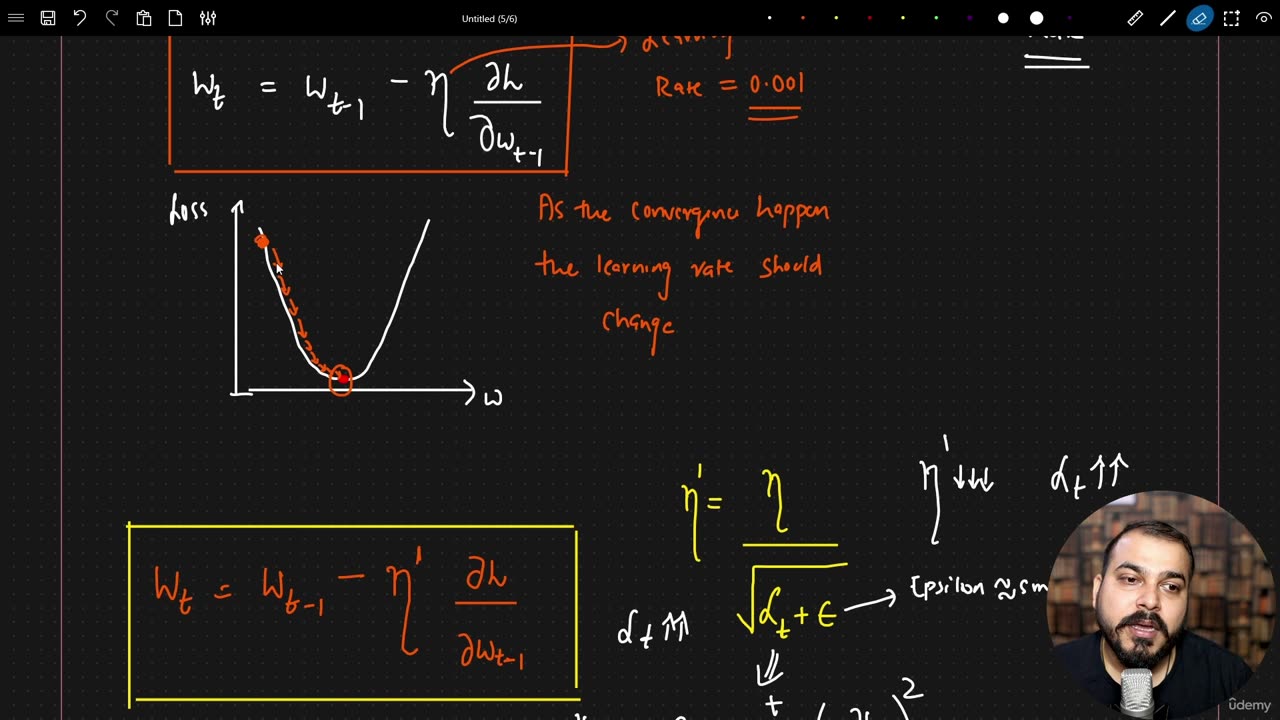 Untitled (5/6)
Learning
Rate = 0.001
W_t = W_{t-1} - η ∂L/∂w_{t-1}
Loss
w
As the convergence happen
the learning rate should
change
η' = η / √(α_t + ε)
η' ↓↓↓ α_t ↑↑
Epsilon ≈ sm
α_t ↑↑
W_t = W_{t-1} - η' ∂L/∂w_{t-1}
t
2
ûdemy